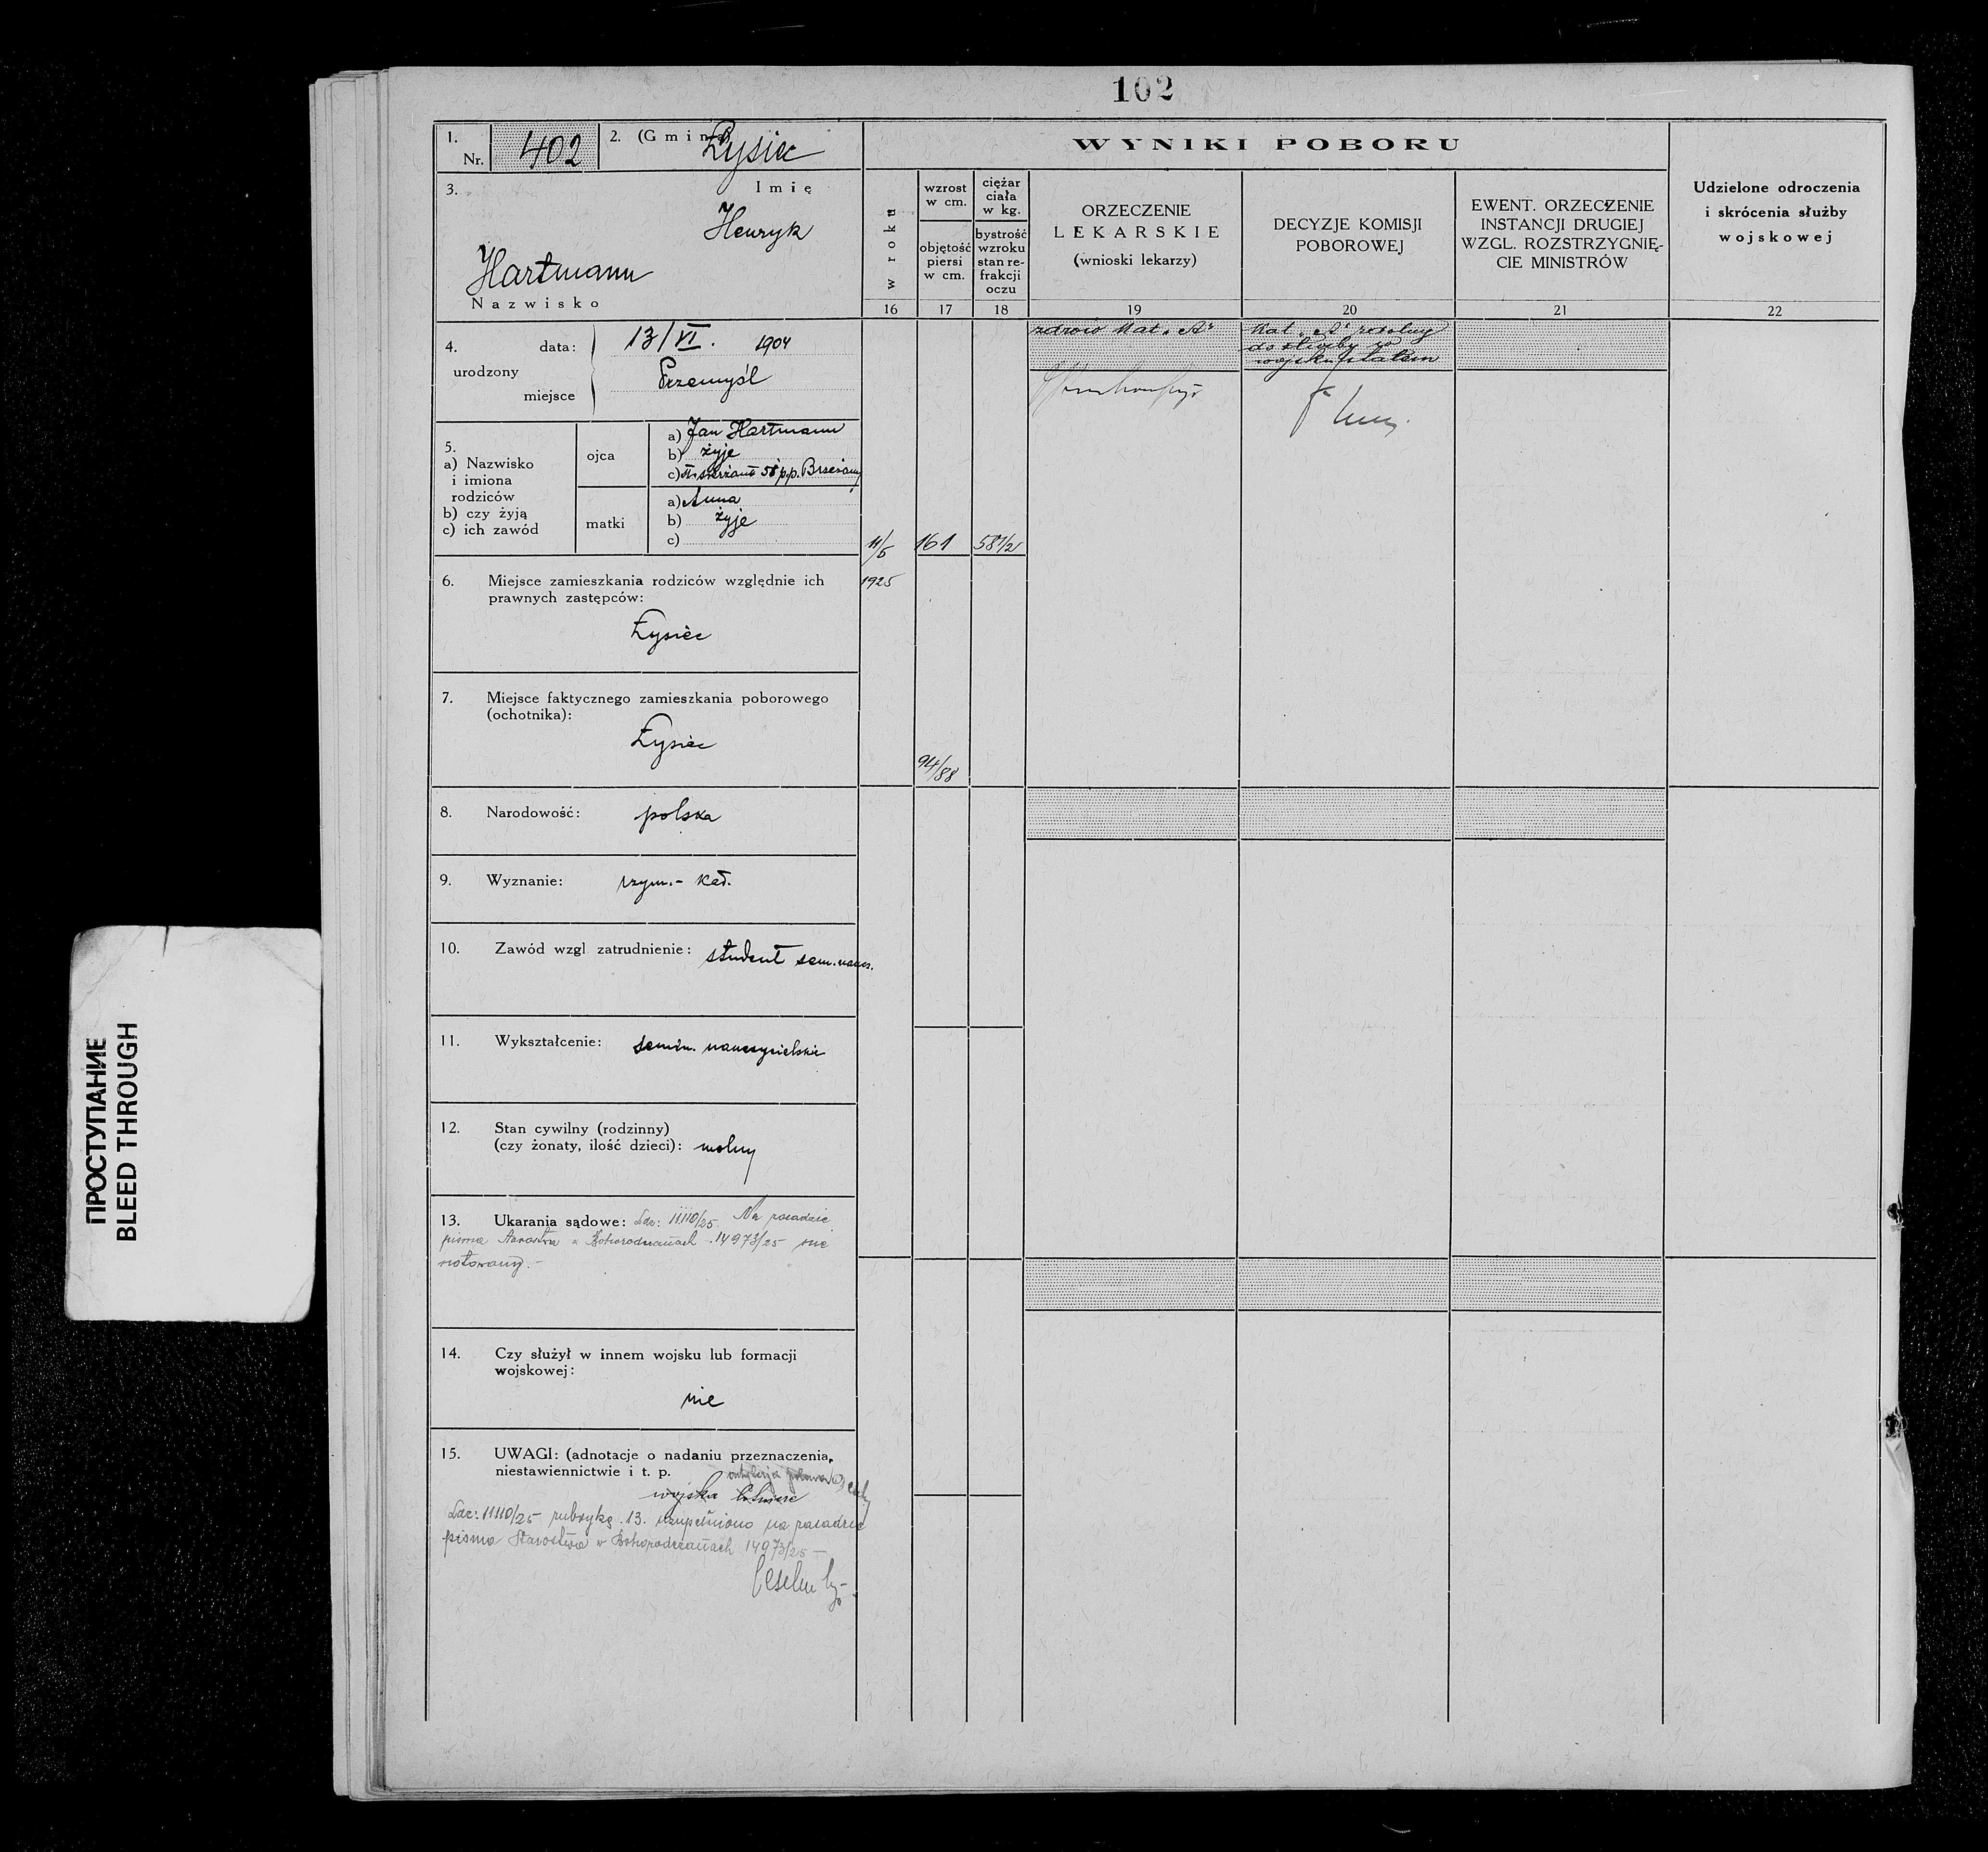 102
1.
Nr. 402
2. (Gmina) Łysiec
3.
Imię
Henryk
Hartmann
Nazwisko
4. urodzony
data: 13/VI. 1904
miejsce Przemyśl
5.
a) Nazwisko
i imiona
rodziców
b) czy żyją
c) ich zawód
ojca
a) Jan Hartmann
b) żyje
c) st. sierżant 58 p.p. Brzeżany
matki
a) Anna
b) żyje
c)
6. Miejsce zamieszkania rodziców względnie ich
prawnych zastępców:
Łysiec
7. Miejsce faktycznego zamieszkania poborowego
(ochotnika):
Łysiec
8. Narodowość: polska
9. Wyznanie: rzym.- kat.
10. Zawód wzgl zatrudnienie: student sem. naucz.
11. Wykształcenie: semin. nauczycielskie
12. Stan cywilny (rodzinny)
(czy żonaty, ilość dzieci): wolny
13. Ukarania sądowe: Ldz: 11110/25. Na zasadzie
pisma Starostwa w Bohorodczanach 14973/25 nie
notowany.-
14. Czy służył w innem wojsku lub formacji
wojskowej:
nie
15. UWAGI: (adnotacje o nadaniu przeznaczenia,
niestawiennictwie i t. p.
wojska
Ldz: 11110/25 rubrykę 13. uzupełniono na zasadzie
pisma Starostwa w Bohorodczanach 14973/25 -
WYNIKI POBORU
w roku
16
wzrost
w cm.
objętość
piersi
w cm.
17
ciężar
ciała
w kg.
bystrość
wzroku
stan re-
frakcji
oczu
18
ORZECZENIE
LEKARSKIE
(wnioski lekarzy)
19
DECYZJE KOMISJI
POBOROWEJ
20
EWENT. ORZECZENIE
INSTANCJI DRUGIEJ
WZGL. ROZSTRZYGNIĘ-
CIE MINISTRÓW
21
Udzielone odroczenia
i skrócenia służby
wojskowej
22
11/5
1925
161
58 1/2
94/88
zdrów Kat. „A"
Kat. „A" zdolny
do służby w
wojsku stałem
ПРОСТУПАНИЕ
BLEED THROUGH